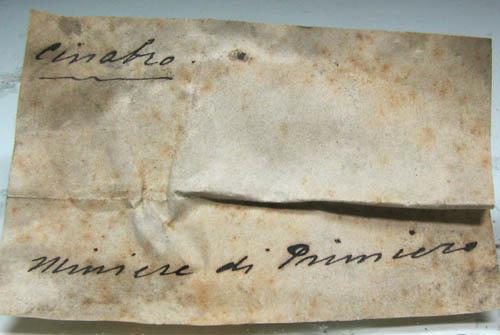 Cinabro.
Miniere di Primiero